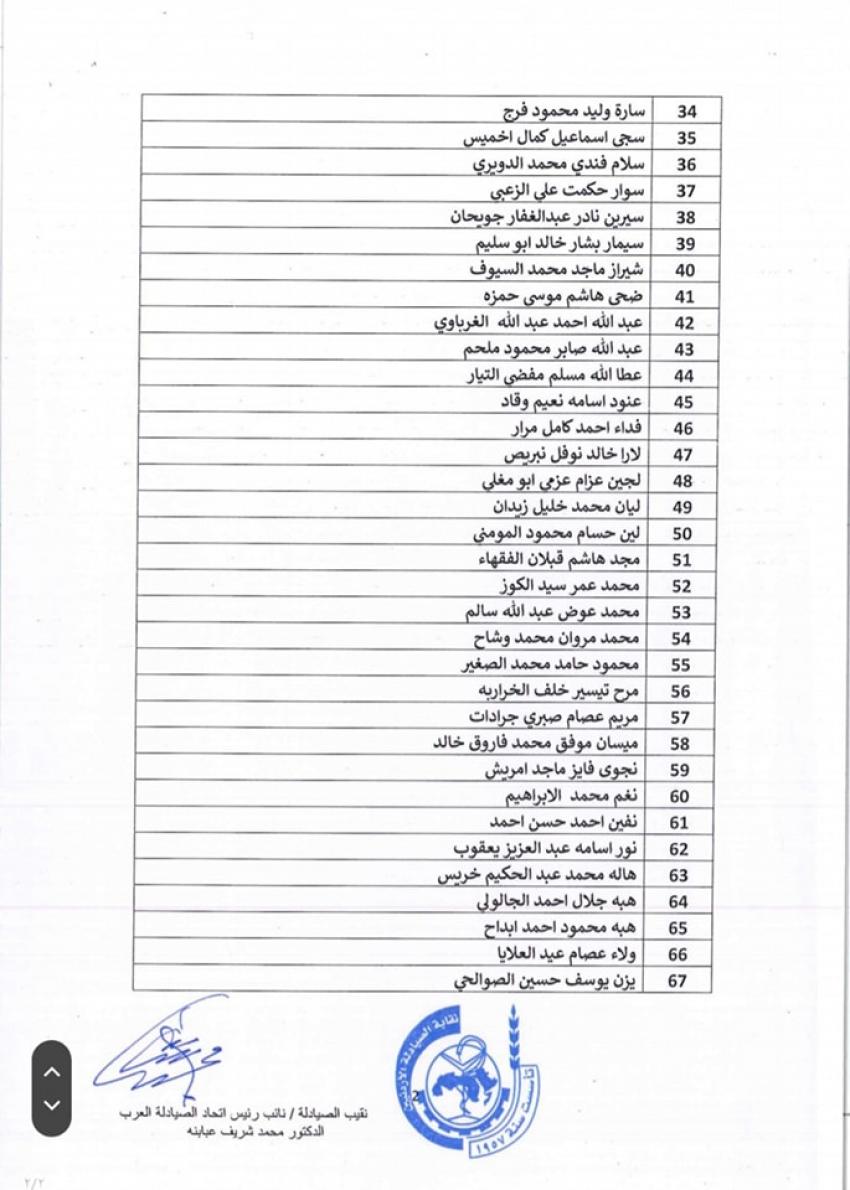 34 سارة وليد محمود فرج
35 سجى اسماعيل كمال اخميس
36 سلام فندي محمد الدويري
37 سوار حكمت علي الزعبي
38 سيرين نادر عبدالغفار جويحان
39 سيمار بشار خالد ابو سليم
40 شيراز ماجد محمد السيوف
41 ضحى هاشم موسى حمزه
42 عبد الله احمد عبد الله الغرباوي
43 عبد الله صابر محمود ملحم
44 عطا الله مسلم مفضي التيار
45 عنود اسامه نعيم وقاد
46 فداء احمد كامل مرار
47 لارا خالد نوفل نبريص
48 لجين عزام عزمي ابو مغلي
49 ليان محمد خليل زيدان
50 لين حسام محمود المومني
51 مجد هاشم قبلان الفقهاء
52 محمد عمر سيد الكوز
53 محمد عوض عبد الله سالم
54 محمد مروان محمد وشاح
55 محمود حامد محمد الصغير
56 مرح تيسير خلف الخرابه
57 مريم عصام صبري جرادات
58 ميسان موفق محمد فاروق خالد
59 نجوى فايز ماجد امريش
60 نغم محمد الابراهيم
61 نفين احمد حسن احمد
62 نور اسامه عبد العزيز يعقوب
63 هاله محمد عبد الحكيم خريس
64 هبه جلال احمد الجالولي
65 هبه محمود احمد ابداح
66 ولاء عصام عيد العلايا
67 يزن يوسف حسين الصوالحي
نقابة الصيادلة الأردنيين
تأسست سنة ١٩٥٧
2
نقيب الصيادلة / نائب رئيس اتحاد الصيادلة العرب
الدكتور محمد شريف عبابنه
٢/٢